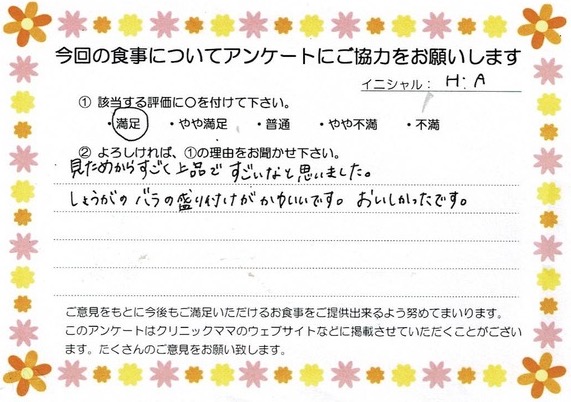 今回の食事についてアンケートにご協力をお願いします
イニシャル： H：A
① 該当する評価に○を付けて下さい。
・満足 ・やや満足 ・普通 ・やや不満 ・不満
② よろしければ、①の理由をお聞かせ下さい。
見ためからすごく上品ですごいなと思いました。
しょうがのバラの盛り付けがかわいいです。おいしかったです。
ご意見をもとに今後もご満足いただけるお食事をご提供出来るよう努めてまいります。
このアンケートはクリニックママのウェブサイトなどに掲載させていただくことがござい
ます。たくさんのご意見をお願い致します。